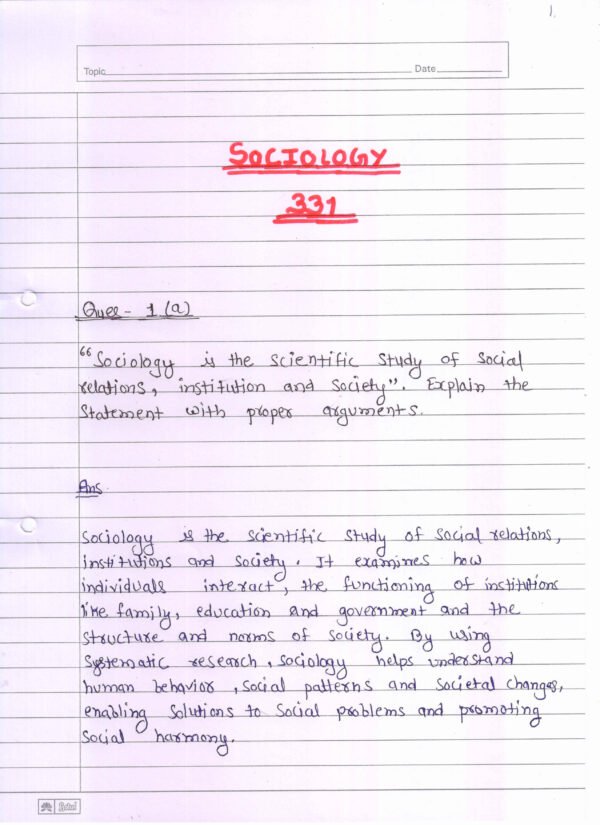 1.
Topic Date
SOCIOLOGY
331
Ques- 1 (a)
“Sociology is the scientific study of social
relations, institution and society”. Explain the
Statement with proper arguments.
Ans
Sociology is the scientific study of social relations,
institutions and society. It examines how
individuals interact, the functioning of institutions
like family, education and government and the
structure and norms of society. By using
systematic research, sociology helps understand
human behavior, social patterns and societal changes,
enabling solutions to social problems and promoting
social harmony.